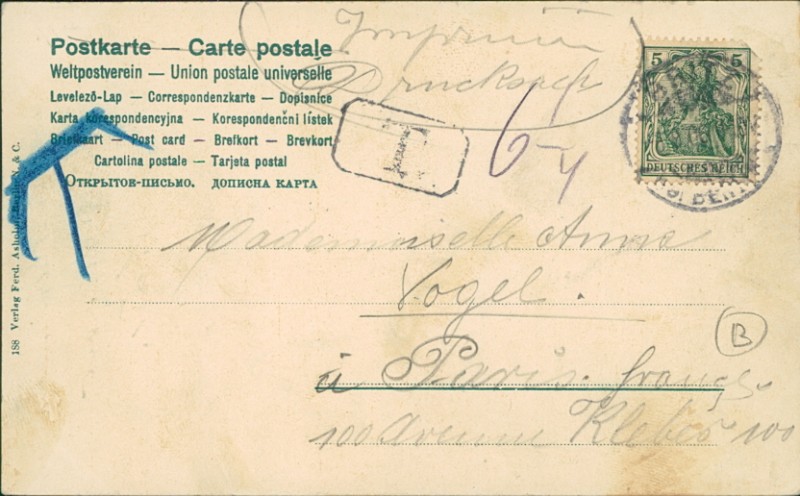 Postkarte — Carte postale
Weltpostverein — Union postale universelle
Levelező-Lap — Correspondenzkarte — Dopisnice
Karta korespondencyjna — Korespondenční lístek
Briefkaart — Post card — Brefkort — Brevkort
Cartolina postale — Tarjeta postal
Открытое-письмо. дописна карта
Imprimé
Drucksach
T
5 5
DEUTSCHES REICH
Mademoiselle Anna
Vogel.
à Paris. françe
100 Avenue Kleber 100
B
188 Verlag Ferd. Ashelm, Berlin N. & C.